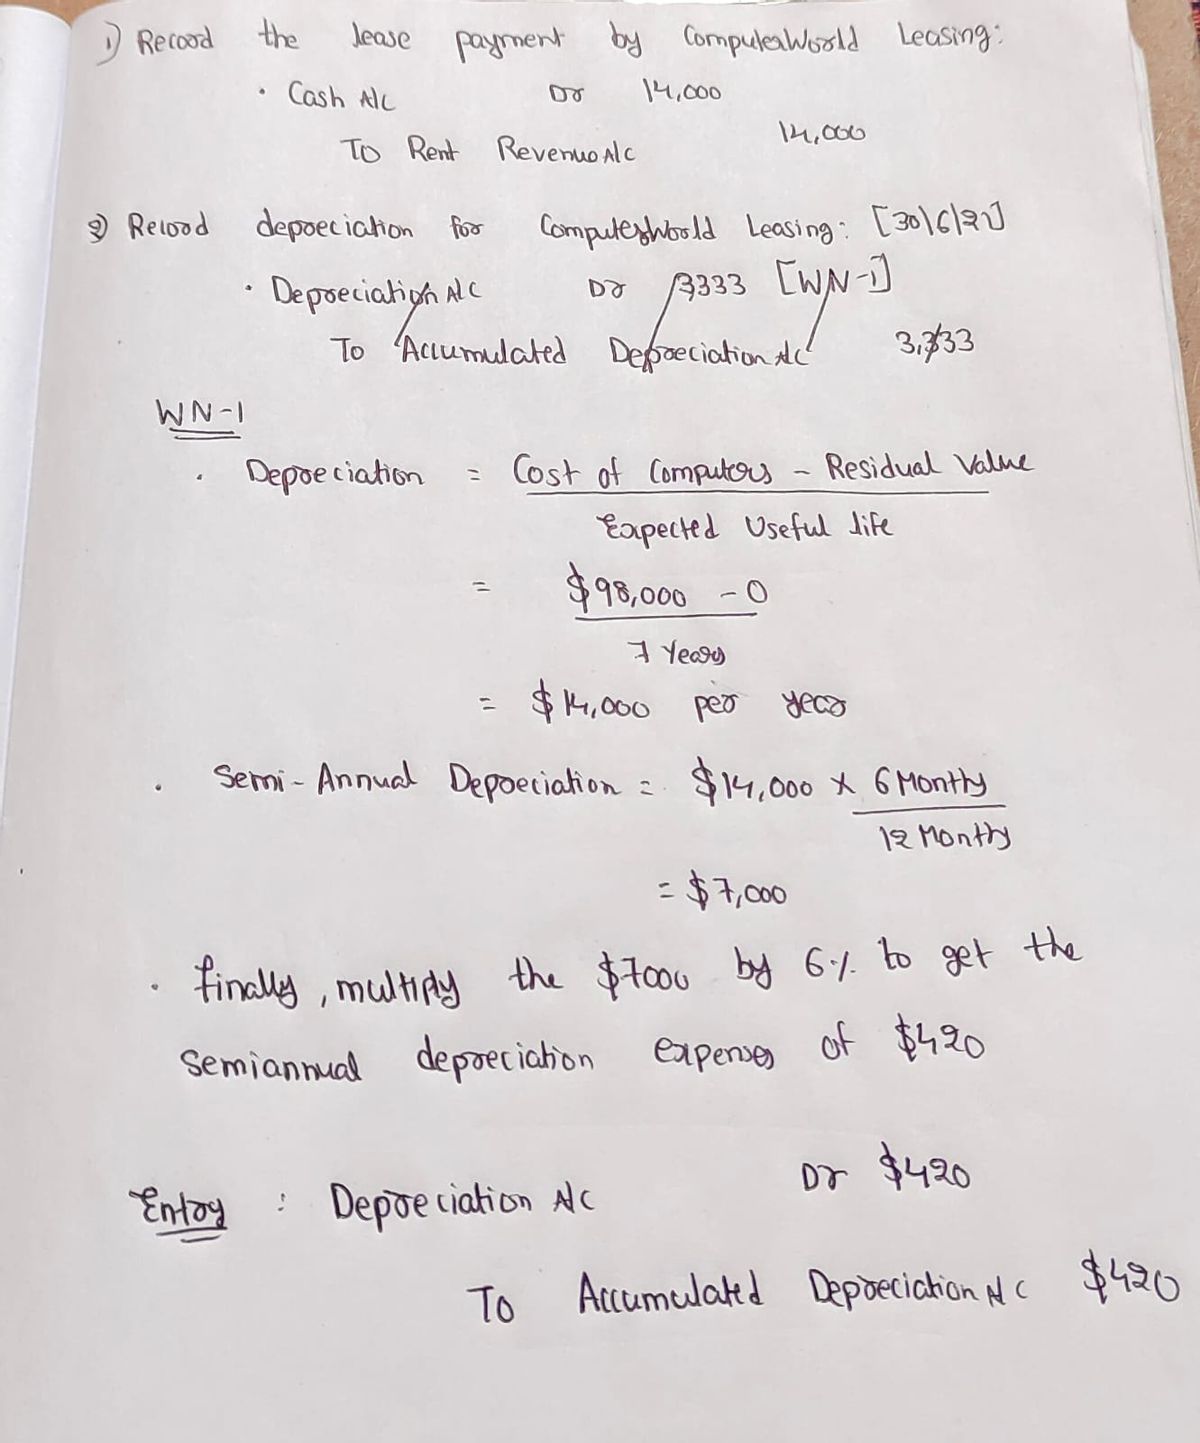 1) Record the lease payment by ComputerWorld Leasing:
• Cash A/c Dr 14,000
To Rent Revenue A/c 14,000
2) Record depreciation for ComputerWorld Leasing: [30/6/21]
• Depreciation A/c Dr 3333 [WN-1]
To Accumulated Depreciation A/c 3,333
WN-1
• Depreciation = Cost of Computers - Residual Value
Expected Useful life
= $98,000 - 0
7 Years
= $14,000 per year
• Semi-Annual Depreciation = $14,000 x 6 Months
12 Months
= $7,000
• finally, multiply the $7000 by 6% to get the
semiannual depreciation expenses of $420
Entry : Depreciation A/c Dr $420
To Accumulated Depreciation A/c $420